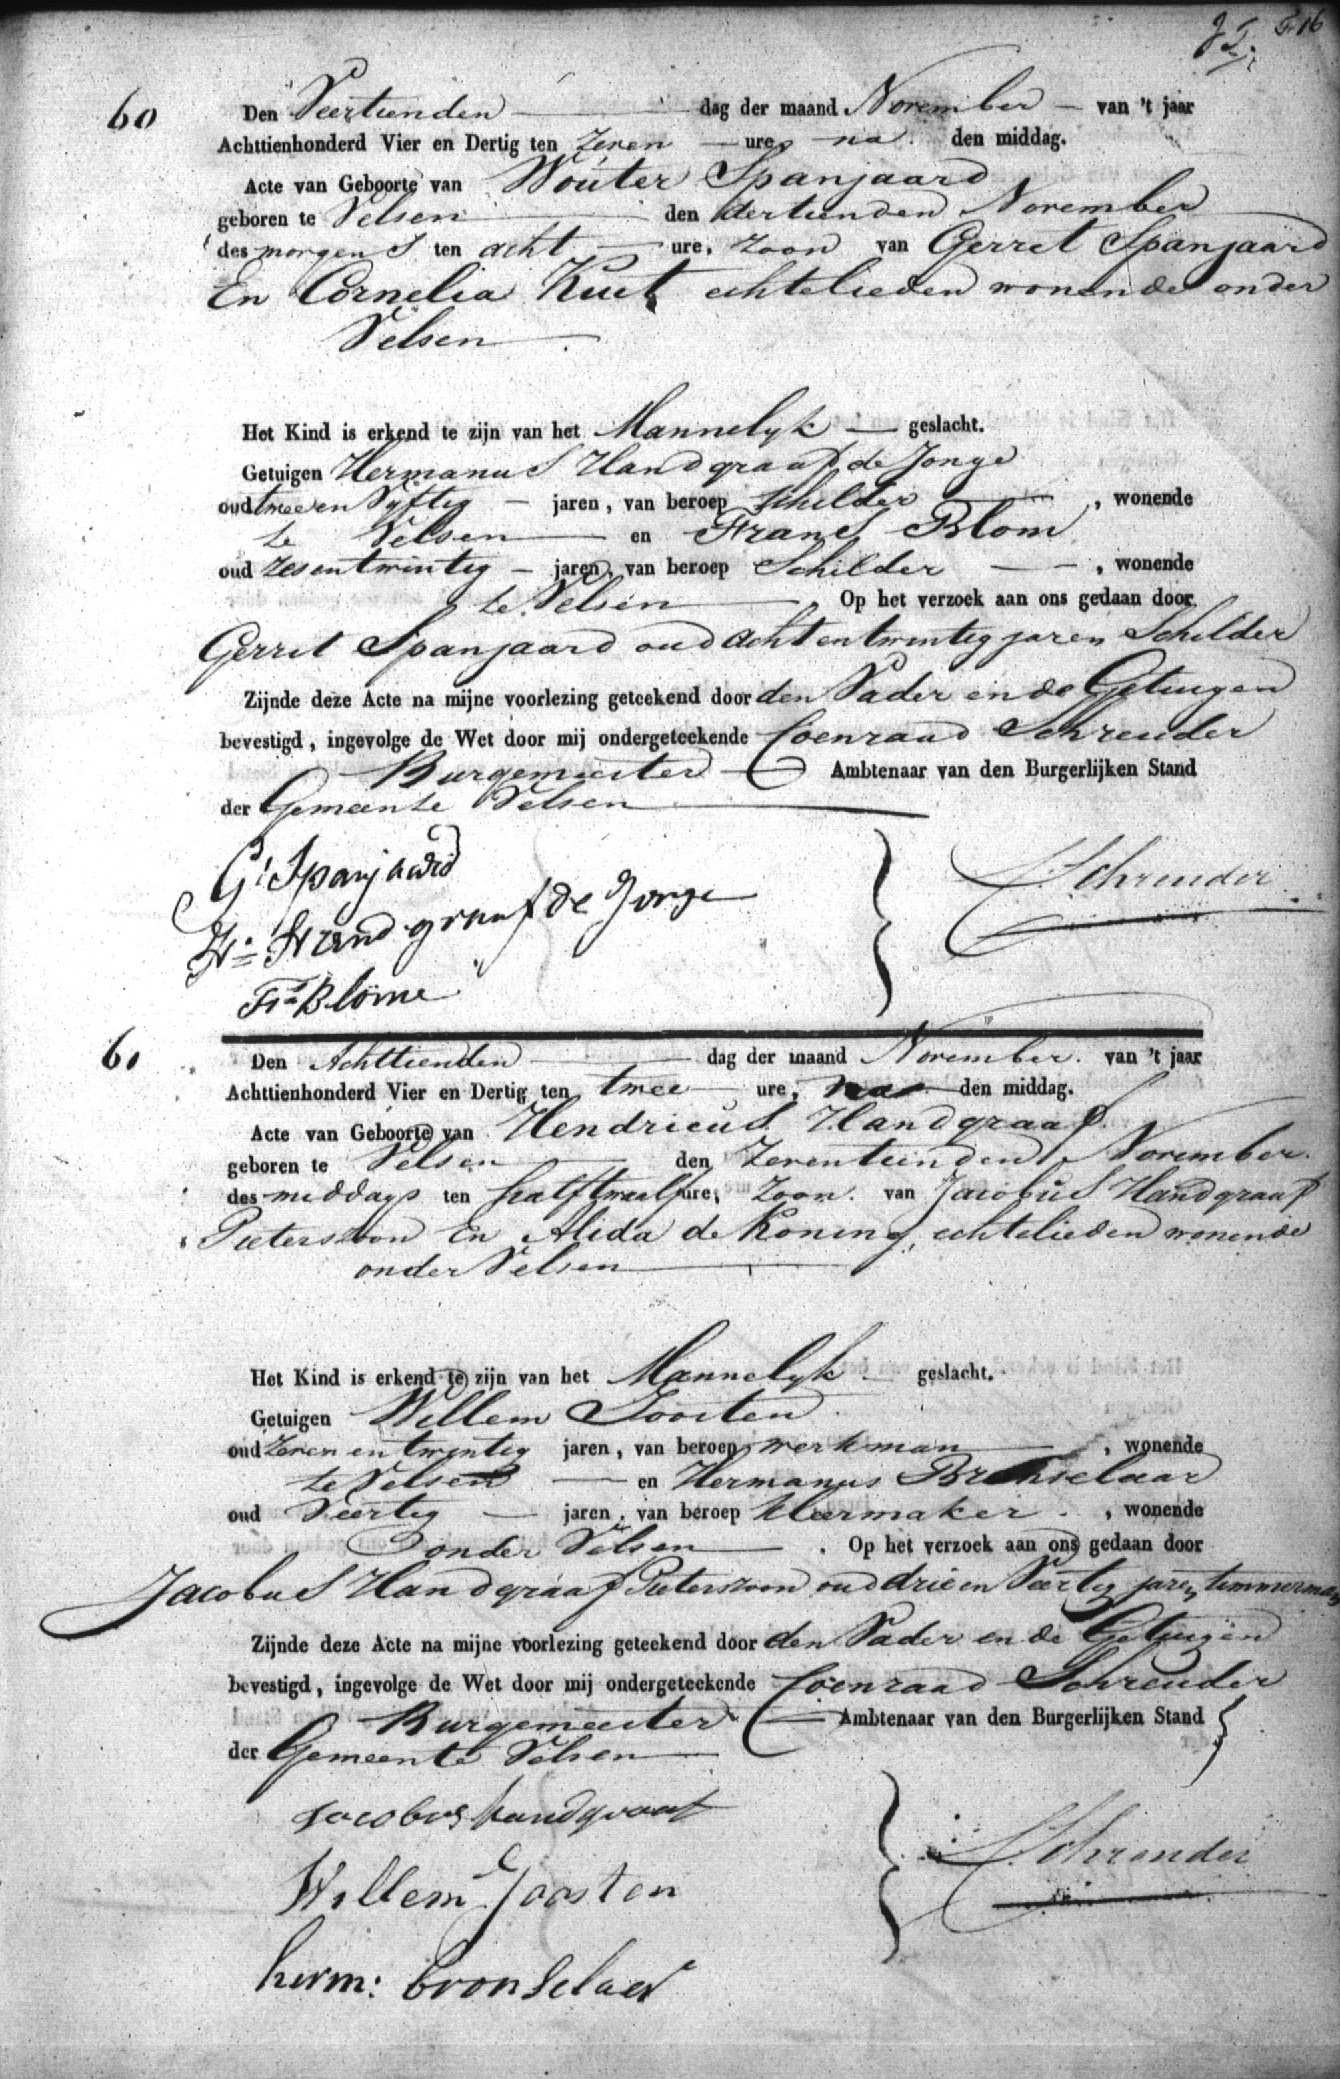 F 16
60
Den Veertienden dag der maand November van 't jaar
Achttienhonderd Vier en Dertig ten Zeven ure, na den middag.
Acte van Geboorte van Wouter Spanjaard
geboren te Velsen den dertienden November
des morgens ten acht ure, zoon van Gerret Spanjaard
En Cornelia Kuet echtelieden wonende onder
Velsen
Het Kind is erkend te zijn van het Mannelyk geslacht.
Getuigen Hermanus Handgraaf de Jonge
oud twee en Vyftig jaren, van beroep schilder, wonende
te Velsen en Frans Blom
oud zes en twintig jaren, van beroep Schilder, wonende
te Velsen Op het verzoek aan ons gedaan door
Gerret Spanjaard oud acht en twintig jaren Schilder
Zijnde deze Acte na mijne voorlezing geteekend door den Vader en de Getuigen
bevestigd, ingevolge de Wet door mij ondergeteekende Coenraad Schreuder
Burgemeester Ambtenaar van den Burgerlijken Stand
der Gemeente Velsen
Gt Spanjaard
Hs Handgraaf de Jonge
Fs Blome
C Schreuder
61
Den Achttienden dag der maand November van 't jaar
Achttienhonderd Vier en Dertig ten twee ure, na den middag.
Acte van Geboorte van Hendricus Handgraaf
geboren te Velsen den Zeventienden November
des middags ten halftwaalf ure, zoon van Jacobus Handgraaf
Pieterszoon En Alida de Koning, echtelieden wonende
onder Velsen
Het Kind is erkend te zijn van het Mannelyk geslacht.
Getuigen Willem Joosten
oud Zeven en twintig jaren, van beroep werkman, wonende
te Velsen en Hermanus Bronselaar
oud Veertig jaren, van beroep kleermaker, wonende
onder Velsen. Op het verzoek aan ons gedaan door
Jacobus Handgraaf Pieterszoon oud drie en Veertig jaren, timmerman
Zijnde deze Acte na mijne voorlezing geteekend door den Vader en de Getuigen
bevestigd, ingevolge de Wet door mij ondergeteekende Coenraad Schreuder
Burgemeester Ambtenaar van den Burgerlijken Stand
der Gemeente Velsen
Jacobus handgraaf
Willem Joosten
herm: bronselaer
C Schreuder